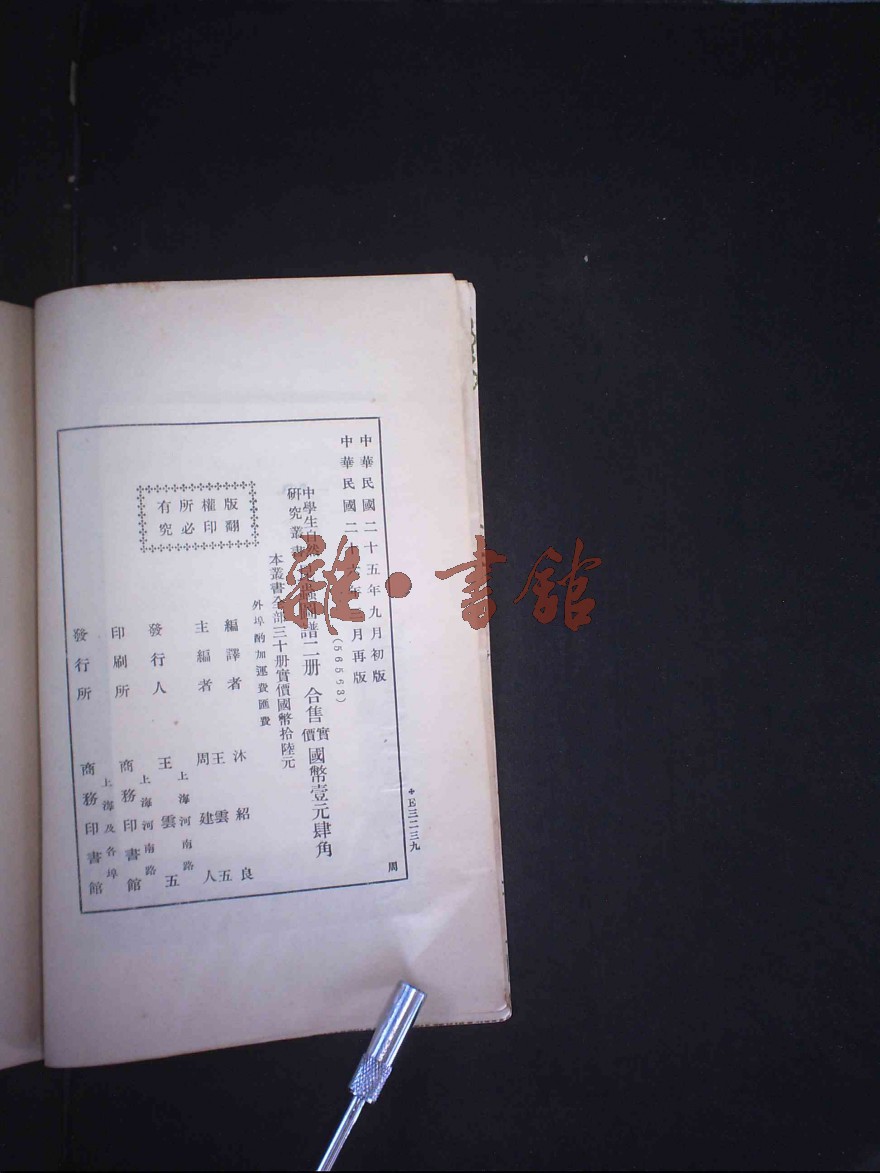 中華民國二十五年九月初版
中華民國二十 年 月再版
(56553)
中學生自然研究叢書
譜二册
合售實價國幣壹元肆角
本叢書全部三十册實價國幣拾陸元
外埠酌加運費匯費
版權所有
翻印必究
編譯者 沐紹良
主編者 王雲五 周建人
發行人 王雲五
上海河南路
印刷所 商務印書館
上海河南路
發行所 商務印書館
上海及各埠
E三一二三九
周
雜·書館